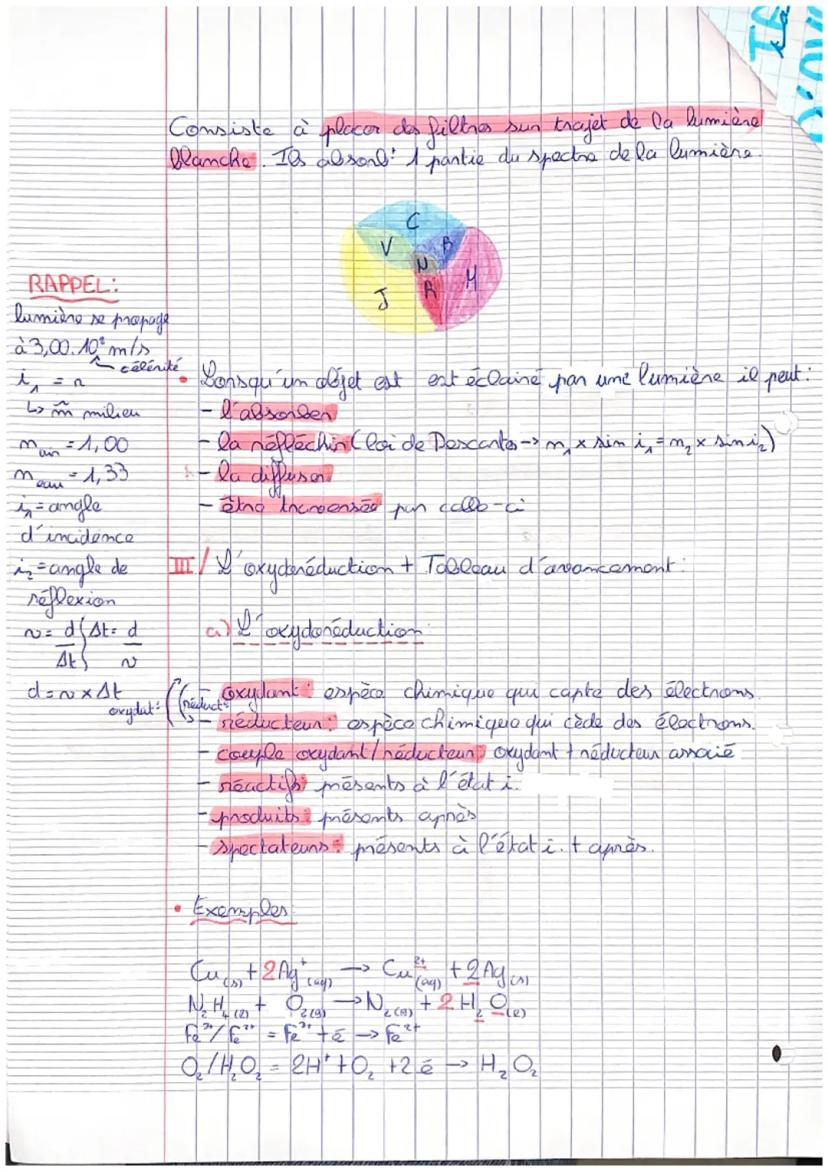 Consiste à placer des filtres sur trajet de la lumière
blanche. Ils absorb: 1 partie du spectre de la lumière.
C
V
B
N
J
R
M
RAPPEL:
lumière se propage
à 3,00.10⁸ m/s
célérité
i₁ = r
↳ m̂ milieu
n air = 1,00
n eau = 1,33
i₁ = angle
d'incidence
i₂ = angle de
réflexion
v = d/Δt Δt = d/v
d = v × Δt
• Lorsqu'un objet est est éclairé par une lumière il peut:
- l'absorber
- la réfléchir (loi de Descartes → n₁ × sin i₁ = n₂ × sin i₂)
- la diffuser
- être traversée par celle-ci
III/ L'oxydoréduction + Tableau d'avancement:
a) L'oxydoréduction
oxydat: (réduct:
- oxydant: espèce chimique qui capte des électrons.
- réducteur: espèce chimique qui cède des électrons.
- couple oxydant/réducteur: oxydant + réducteur associé
- réactifs: présents à l'état i.
- produits: présents après
- spectateurs: présents à l'état i. + après.
• Exemples:
Cu(s) + 2Ag⁺(aq) → Cu²⁺(aq) + 2Ag(s)
N₂H₄(l) + O₂(g) → N₂(g) + 2H₂O(l)
Fe³⁺/Fe²⁺ = Fe³⁺ + é → Fe²⁺
O₂/H₂O₂ = 2H⁺ + O₂ + 2é → H₂O₂